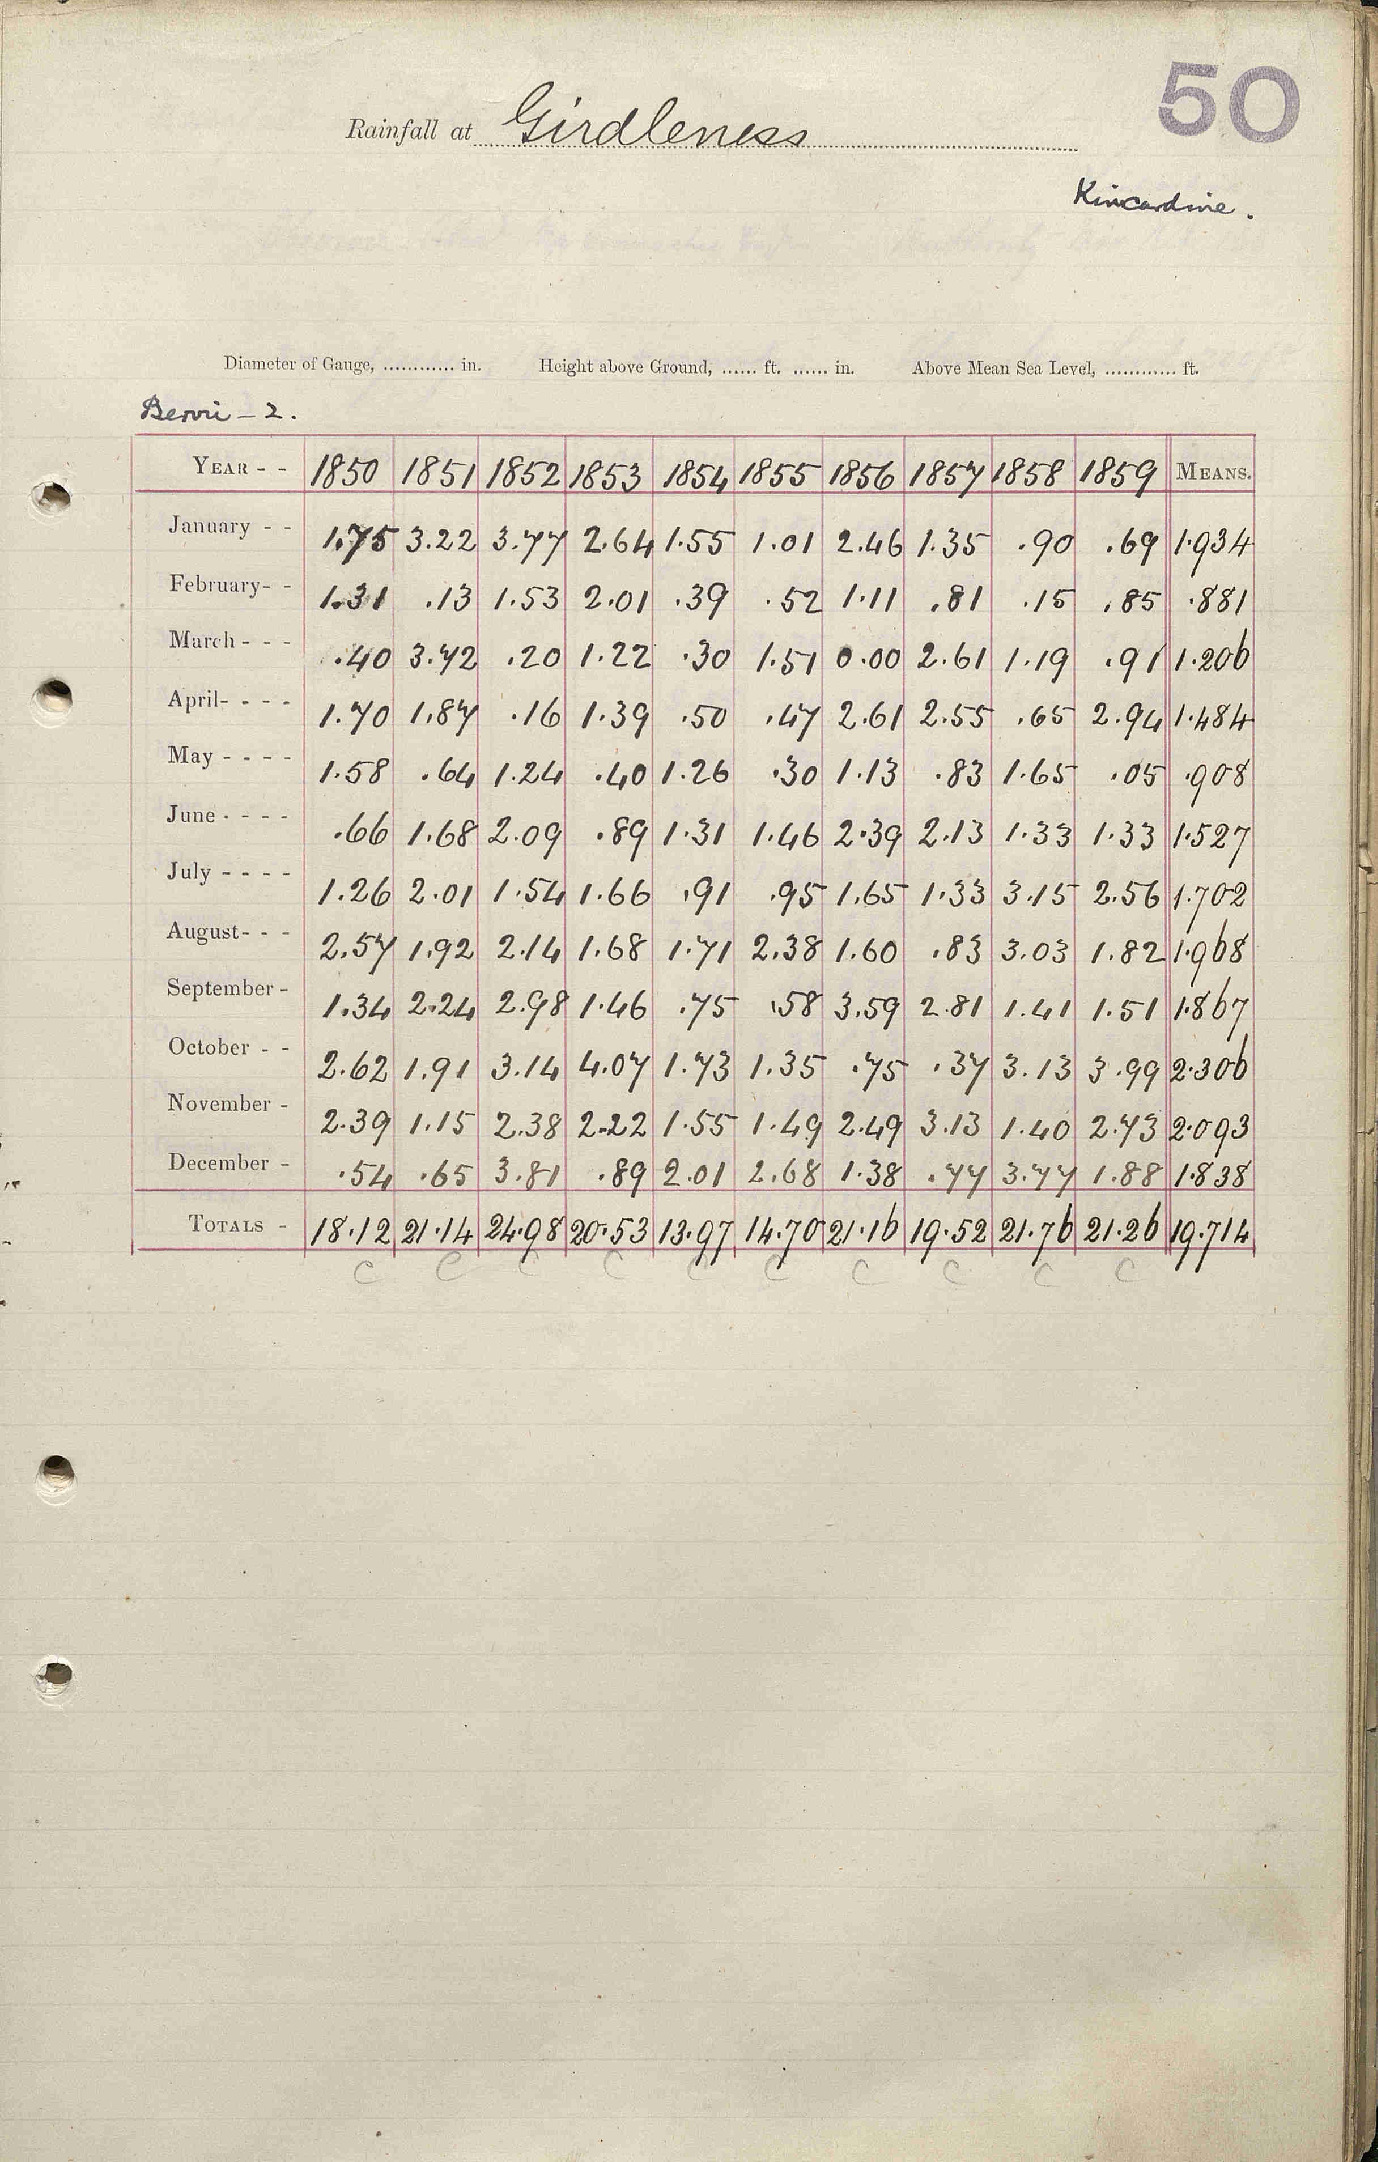 50
Rainfall at Girdleness
Kincardine.
Diameter of Gauge, ............ in. Height above Ground, ...... ft. ...... in. Above Mean Sea Level, ............ ft.
Bervie - 2.
YEAR - - 1850 1851 1852 1853 1854 1855 1856 1857 1858 1859 MEANS.
January - - 1.75 3.22 3.77 2.64 1.55 1.01 2.46 1.35 .90 .69 1.934
February- - 1.31 .13 1.53 2.01 .39 .52 1.11 .81 .15 .85 .881
March - - - .40 3.72 .20 1.22 .30 1.51 0.00 2.61 1.19 .91 1.206
April- - - - 1.70 1.87 .16 1.39 .50 .47 2.61 2.55 .65 2.94 1.484
May - - - - 1.58 .64 1.24 .40 1.26 .30 1.13 .83 1.65 .05 .908
June - - - - .66 1.68 2.09 .89 1.31 1.46 2.39 2.13 1.33 1.33 1.527
July - - - - 1.26 2.01 1.54 1.66 .91 .95 1.65 1.33 3.15 2.56 1.702
August- - - 2.57 1.92 2.14 1.68 1.71 2.38 1.60 .83 3.03 1.82 1.968
September - 1.34 2.24 2.98 1.46 .75 .58 3.59 2.81 1.41 1.51 1.867
October - - 2.62 1.91 3.14 4.07 1.73 1.35 .75 .37 3.13 3.99 2.306
November - 2.39 1.15 2.38 2.22 1.55 1.49 2.49 3.13 1.40 2.73 2.093
December - .54 .65 3.81 .89 2.01 2.68 1.38 .77 3.77 1.88 1.838
TOTALS - 18.12 21.14 24.98 20.53 13.97 14.70 21.16 19.52 21.76 21.26 19.714
C C C C C C C C C C